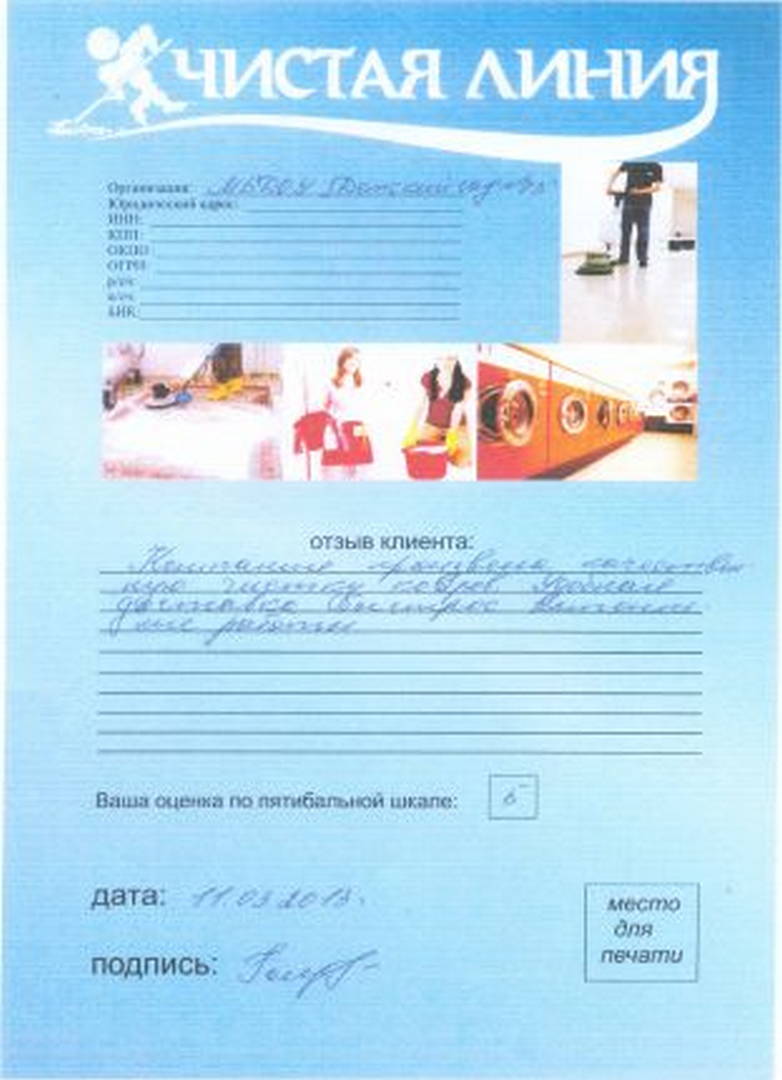 ЧИСТАЯ ЛИНИЯ
Организация: МБДОУ Детский сад
Юридический адрес:
ИНН:
КПП:
ОКПО:
ОГРН:
р/сч:
к/сч:
БИК:
отзыв клиента:
Компания произвела качествен
ную чистку ковров. Удобная
доставка быстрое выполне-
ние работы
Ваша оценка по пятибальной шкале: 5
дата: 11.03.2013.
подпись:
место
для
печати